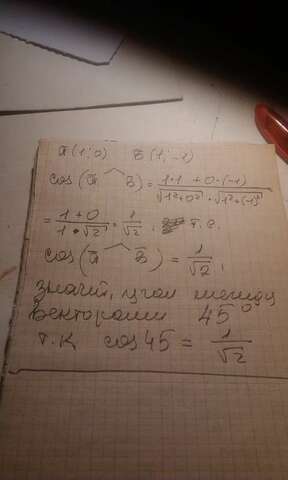 ā(1; 0) b̄(1; -1)
cos(ā ^ b̄) = (1·1 + 0·(-1)) / (√(1²+0²) · √(1²+(-1)²))
= (1+0) / (1·√2) = 1/√2, т.е.
cos(ā ^ b̄) = 1/√2,
значит, угол между
векторами 45°
т.к cos45 = 1/√2